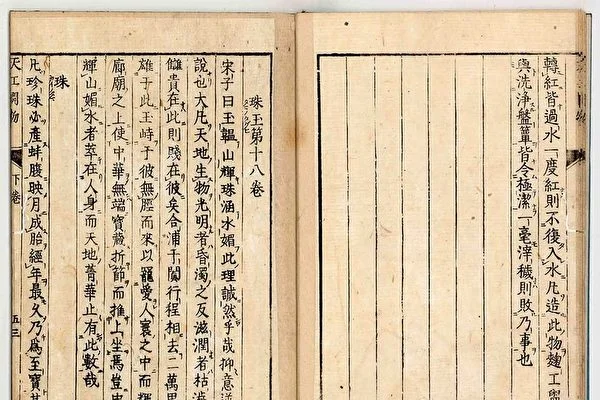 轉紅皆過水一度紅則不復入水凡造此物麹工
與洗淨盤簞皆令極潔一毫滓穢則敗乃事也
珠玉第十八卷
宋子曰玉韞山輝珠涵水媚此理誠然乎哉抑意逆
說也大凡天地生物光明者昏濁之反滋潤者枯澁
讎貴在此則賤在彼矣合浦于闐行程相去二萬里
雄于此玉峙于彼無脛而來以寵愛人寰之中而輝
廊廟之上使中華無端寶藏折節而推上坐焉豈中
輝山媚水者萃在人身而天地菁華止有此數哉
珠
凡珍珠必產蚌腹映月成胎經年最久乃爲至寶其
天工開物 下卷 五三